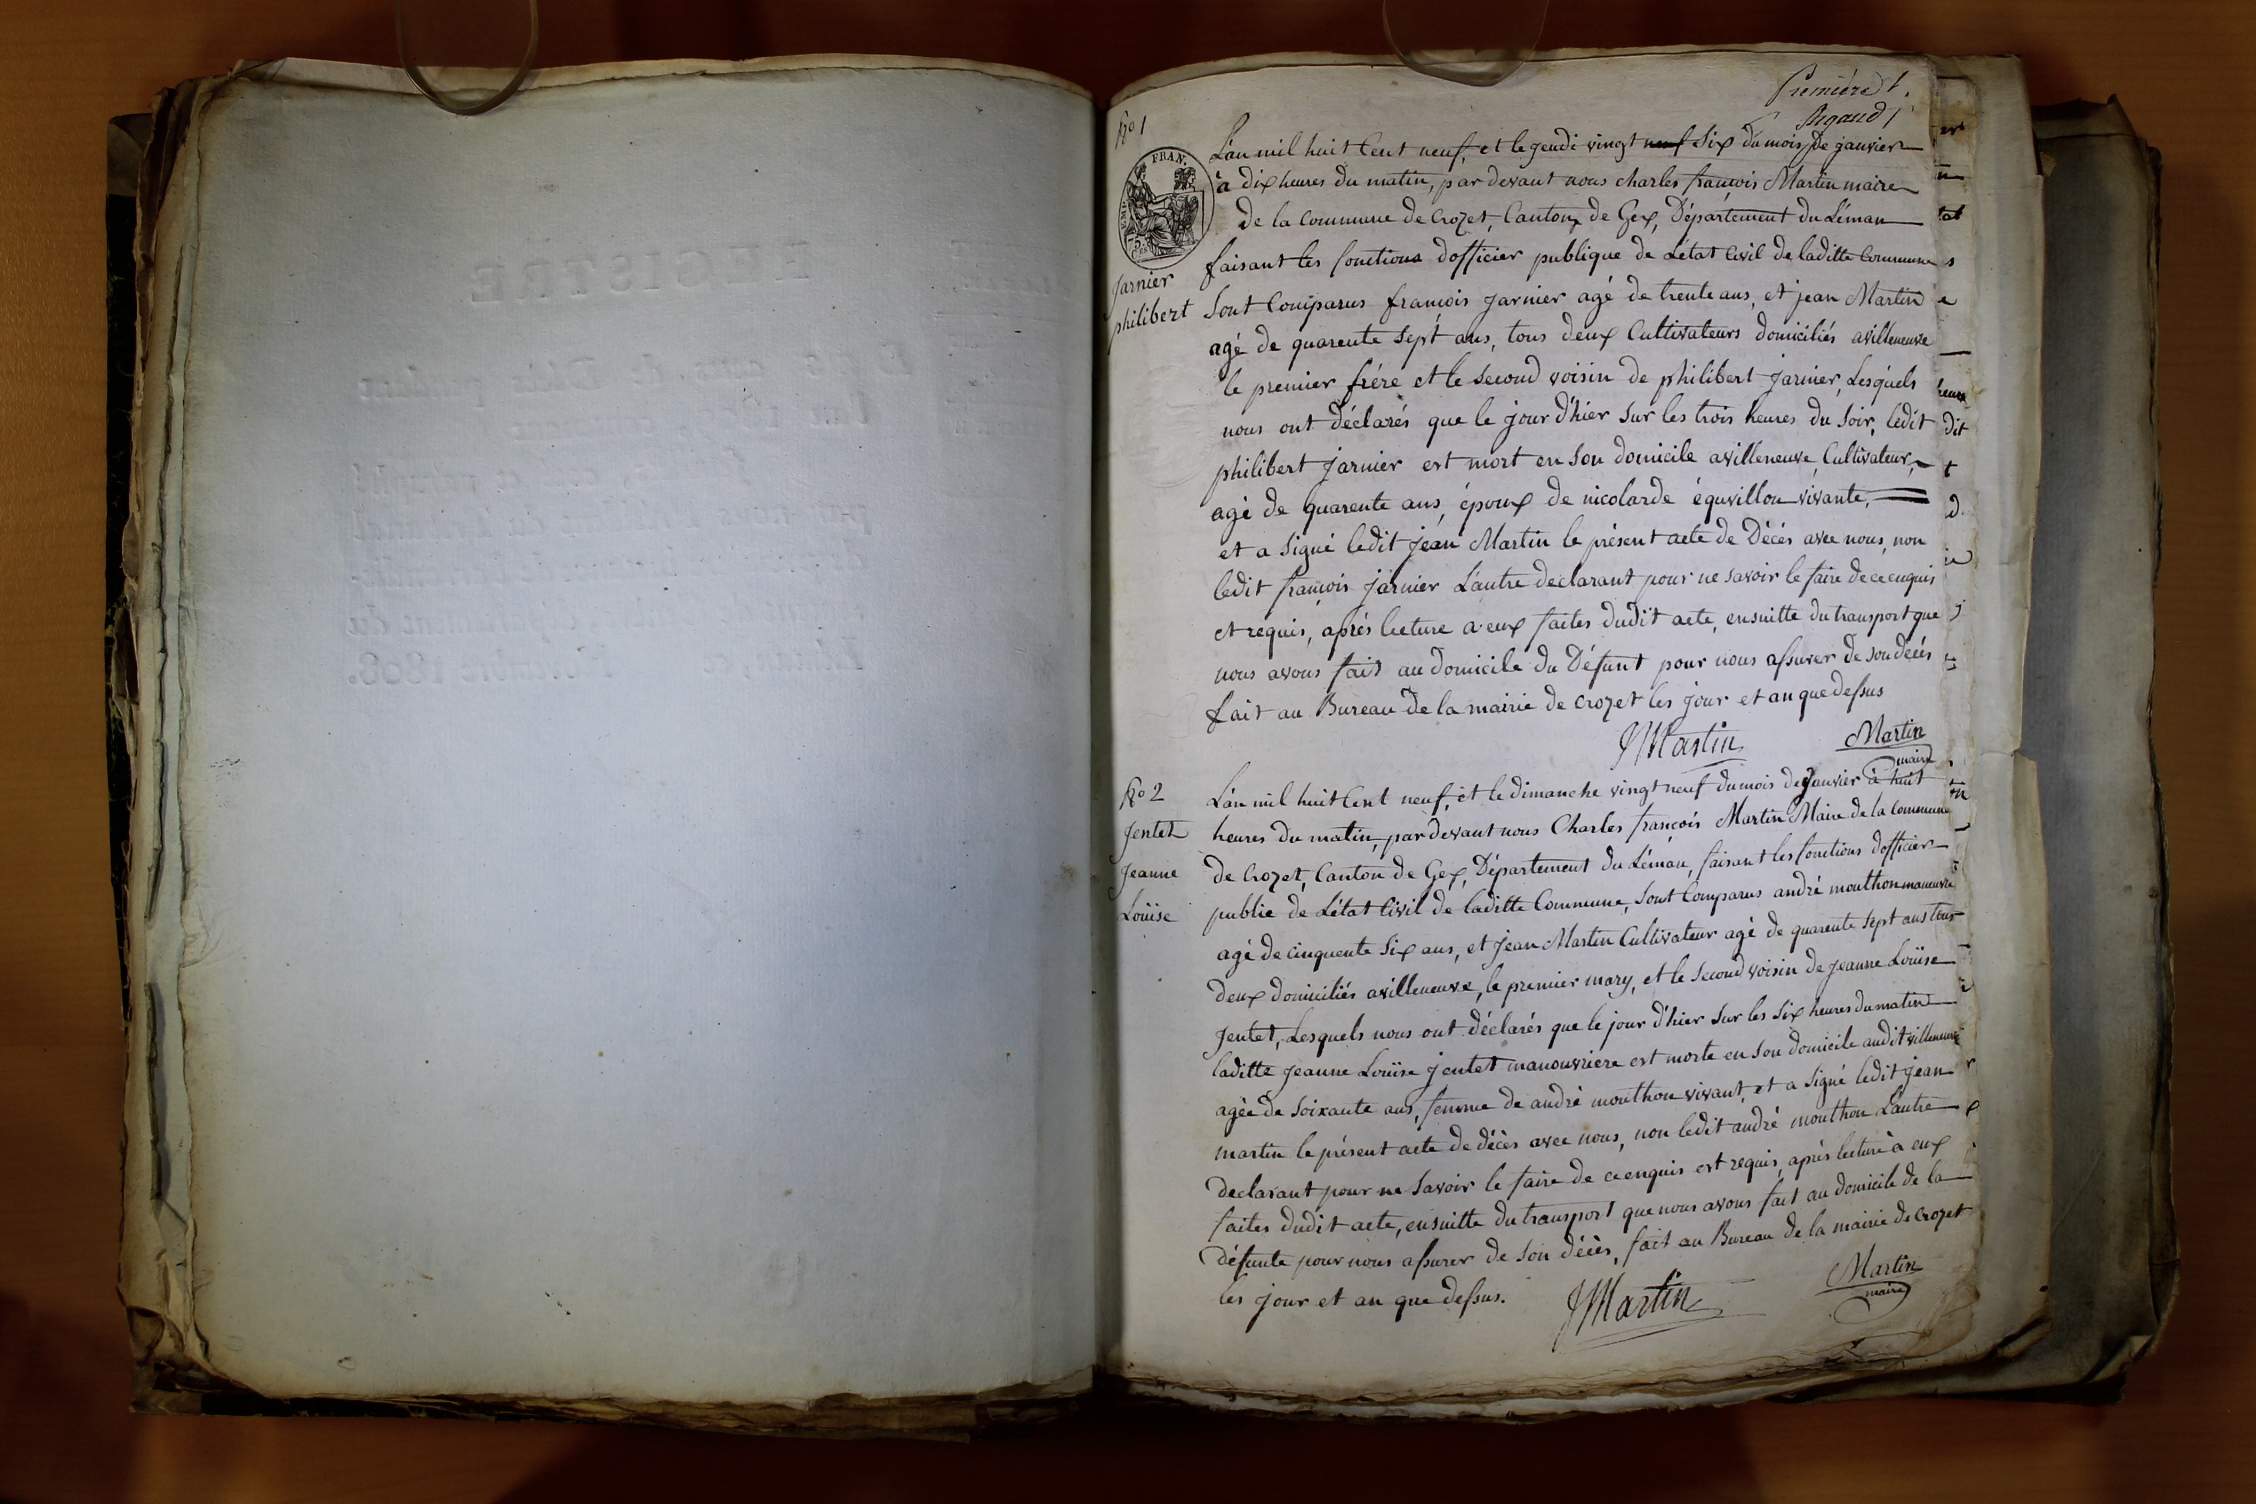 REGISTRE
1808.
Première f.
Rigaud
No 1
L'an mil huit Cent neuf, et le jeudi vingt neuf Six du mois de janvier
à dix heures du matin, par devant nous charles françois Martin maire
de la Commune de Crozet, Canton de Gex, Département du Léman
FRAN.
faisant les fonctions d'officier publique de L'état Civil de laditte Commune
Jarnier
philibert
Sont Comparus françois jarnier agé de trente ans, et jean Martin
agé de quarente sept ans, tous deux Cultivateurs domiciliés avilleneuve
le premier frére et le second voisin de philibert jarnier, Lesquels
nous ont déclarés que le jour d'hier sur les trois heures du Soir, ledit
philibert jarnier est mort en Son domicile avilleneuve, Cultivateur,
agé de quarente ans, époux de nicolarde équvillon vivante,
et a signé ledit jean Martin le présent acte de Décés avec nous, non
ledit françois jarnier L'autre declarant pour ne savoir le faire de ce enquis
et requis, aprés lecture a eux faites dudit acte, ensuitte du transport que
nous avons fait au domicile du Défunt pour nous assurer de son décés
fait au Bureau de la mairie de Crozet les jour et an que dessus
JMartin Martin
maire
No 2
Jentet
Jeanne
Loüise
L'an mil huit Cent neuf, et le dimanche vingt neuf du mois de Janvier à huit
heures du matin, par devant nous Charles françois Martin Maire de la Commune
de Crozet, Canton de Gex, Département du Léman, faisant les fonctions d'officier
public de L'état Civil de laditte Commune, Sont Comparus andré mouthon manouvre
agé de cinquente Six ans, et Jean Martin Cultivateur agé de quarente sept ans tous
deux domiciliés avilleneuve, le premier mary, et le Second voisin de Jeanne Loüise
Jentet, Lesquels nous ont déclarés que le jour d'hier sur les six heures du matin
laditte Jeanne Loüise jentet manouvriere est morte en son domicile audit villeneuve
agée de soixante ans, femme de andré mouthon vivant, et a signé ledit jean
martin le présent acte de décès avec nous, non ledit andré mouthon L'autre
declarant pour ne savoir le faire de ce enquis est requis, après lecture à eux
faites dudit acte, ensuitte du transport que nous avons fait au domicile de la
défunte pour nous assurer de Son décès, fait au Bureau de la mairie de Crozet
les jour et an que dessus.
JMartin Martin
maire